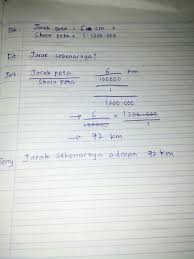 Dik : Jarak peta = 6 cm
Skala peta = 1 : 1200.000
Dit : Jarak sebenarnya?
Jwb : Jarak peta
Skala peta
6 km
100000
1
1200.000
→ 6 × 1200.000
100000 1
→ 72 km
Jarak sebenarnya adalah 72 km